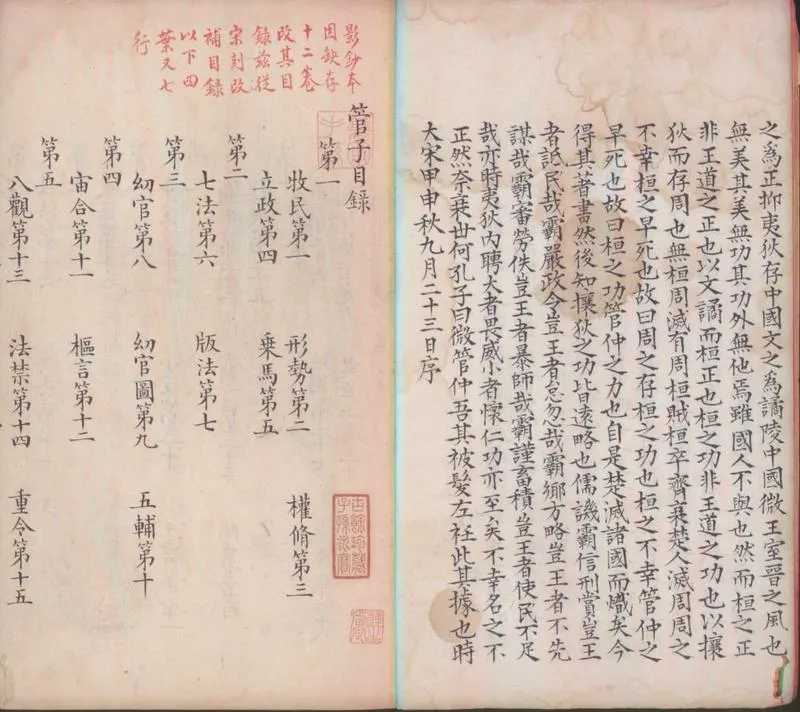 之爲正抑夷狄存中國文之爲譎陵中國微王室晉之風也
無美其美無功其功外無他焉雖國人不與也然而桓之正
非王道之正也以文譎而桓正也桓之功非王道之功也以攘
狄而存周也無桓周滅有周桓賊桓卒齊衰楚人滅周周之
不幸桓之早死也故曰周之存桓之功也桓之不幸管仲之
早死也故曰桓之功管仲之力也自是楚滅諸國而熾矣今
得其著書然後知攘狄之功皆遠略也儒譏霸信刑賞豈王
者詆民哉霸嚴政令豈王者怠忽哉霸鄉方略豈王者不先
謀哉霸審勞佚豈王者暴師哉霸謹畜積豈王者使民不足
哉亦時夷狄內聘大者畏威小者懷仁功亦至矣不幸名之不
正然奈衰世何孔子曰微管仲吾其被髮左衽此其據也時
大宋甲申秋九月二十三日序
影鈔本
因缺存
十二卷
改其目
錄茲從
宋刻改
補目錄
以下四
葉又七
行
管子目錄
第一
牧民第一 形勢第二 權脩第三
立政第四 乘馬第五
第二
七法第六 版法第七
第三
幼官第八 幼官圖第九 五輔第十
第四
宙合第十一 樞言第十二
第五
八觀第十三 法禁第十四 重令第十五